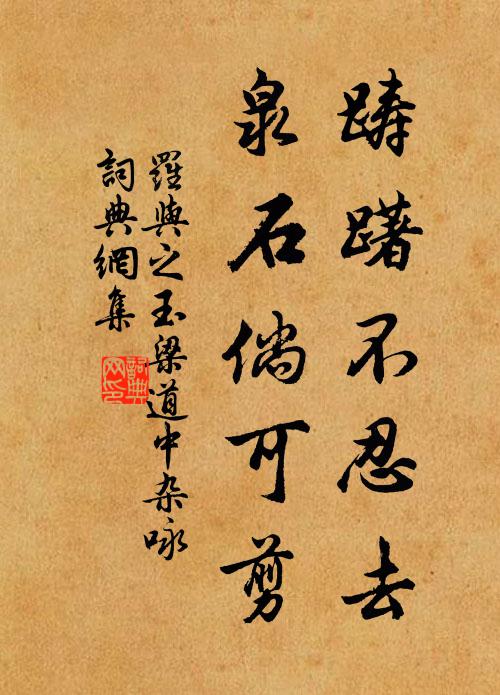 踌躇不忍去
泉石倘可剪
羅與之玉梁道中杂咏
詞典網集
詞典网印